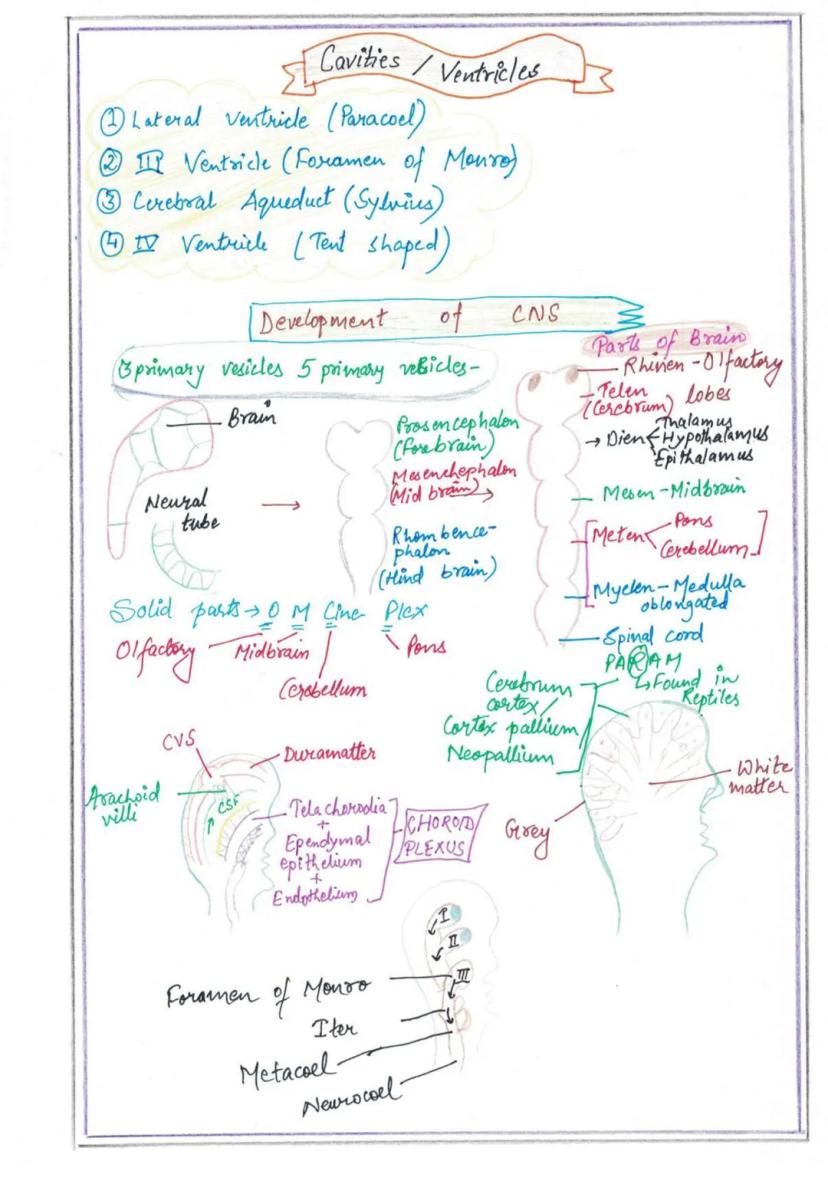 Cavities / Ventricles
① Lateral ventricle (Paracoel)
② III Ventricle (Foramen of Monro)
③ Cerebral Aqueduct (Sylvius)
④ IV Ventricle (Tent shaped)
Development of CNS
3 primary vesicles 5 primary vesicles-
Parts of Brain
Brain
Neural
tube
Prosencephalon
(Forebrain)
Mesenchephalon
(Mid brain)
Rhombence-
phalon
(Hind brain)
Rhinen - Olfactory
lobes
Telen
(Cerebrum)
Dien
Thalamus
Hypothalamus
Epithalamus
Mesen - Midbrain
Meten
Pons
Cerebellum
Myelen - Medulla
oblongated
Spinal cord
Solid parts → O M Cine Plex
Olfactory
Midbrain
Cerebellum
Pons
PARAM
↳ Found in
Reptiles
Cerebrum
cortex/
Cortex pallium
Neopallium
White
matter
Grey
CVS
Duramatter
Arachoid
villi
CSF
Tela chorodia
+
Ependymal
epithelium
+
Endothelium
CHOROID
PLEXUS
I
II
III
Foramen of Monro
Iter
Metacoel
Neurocoel